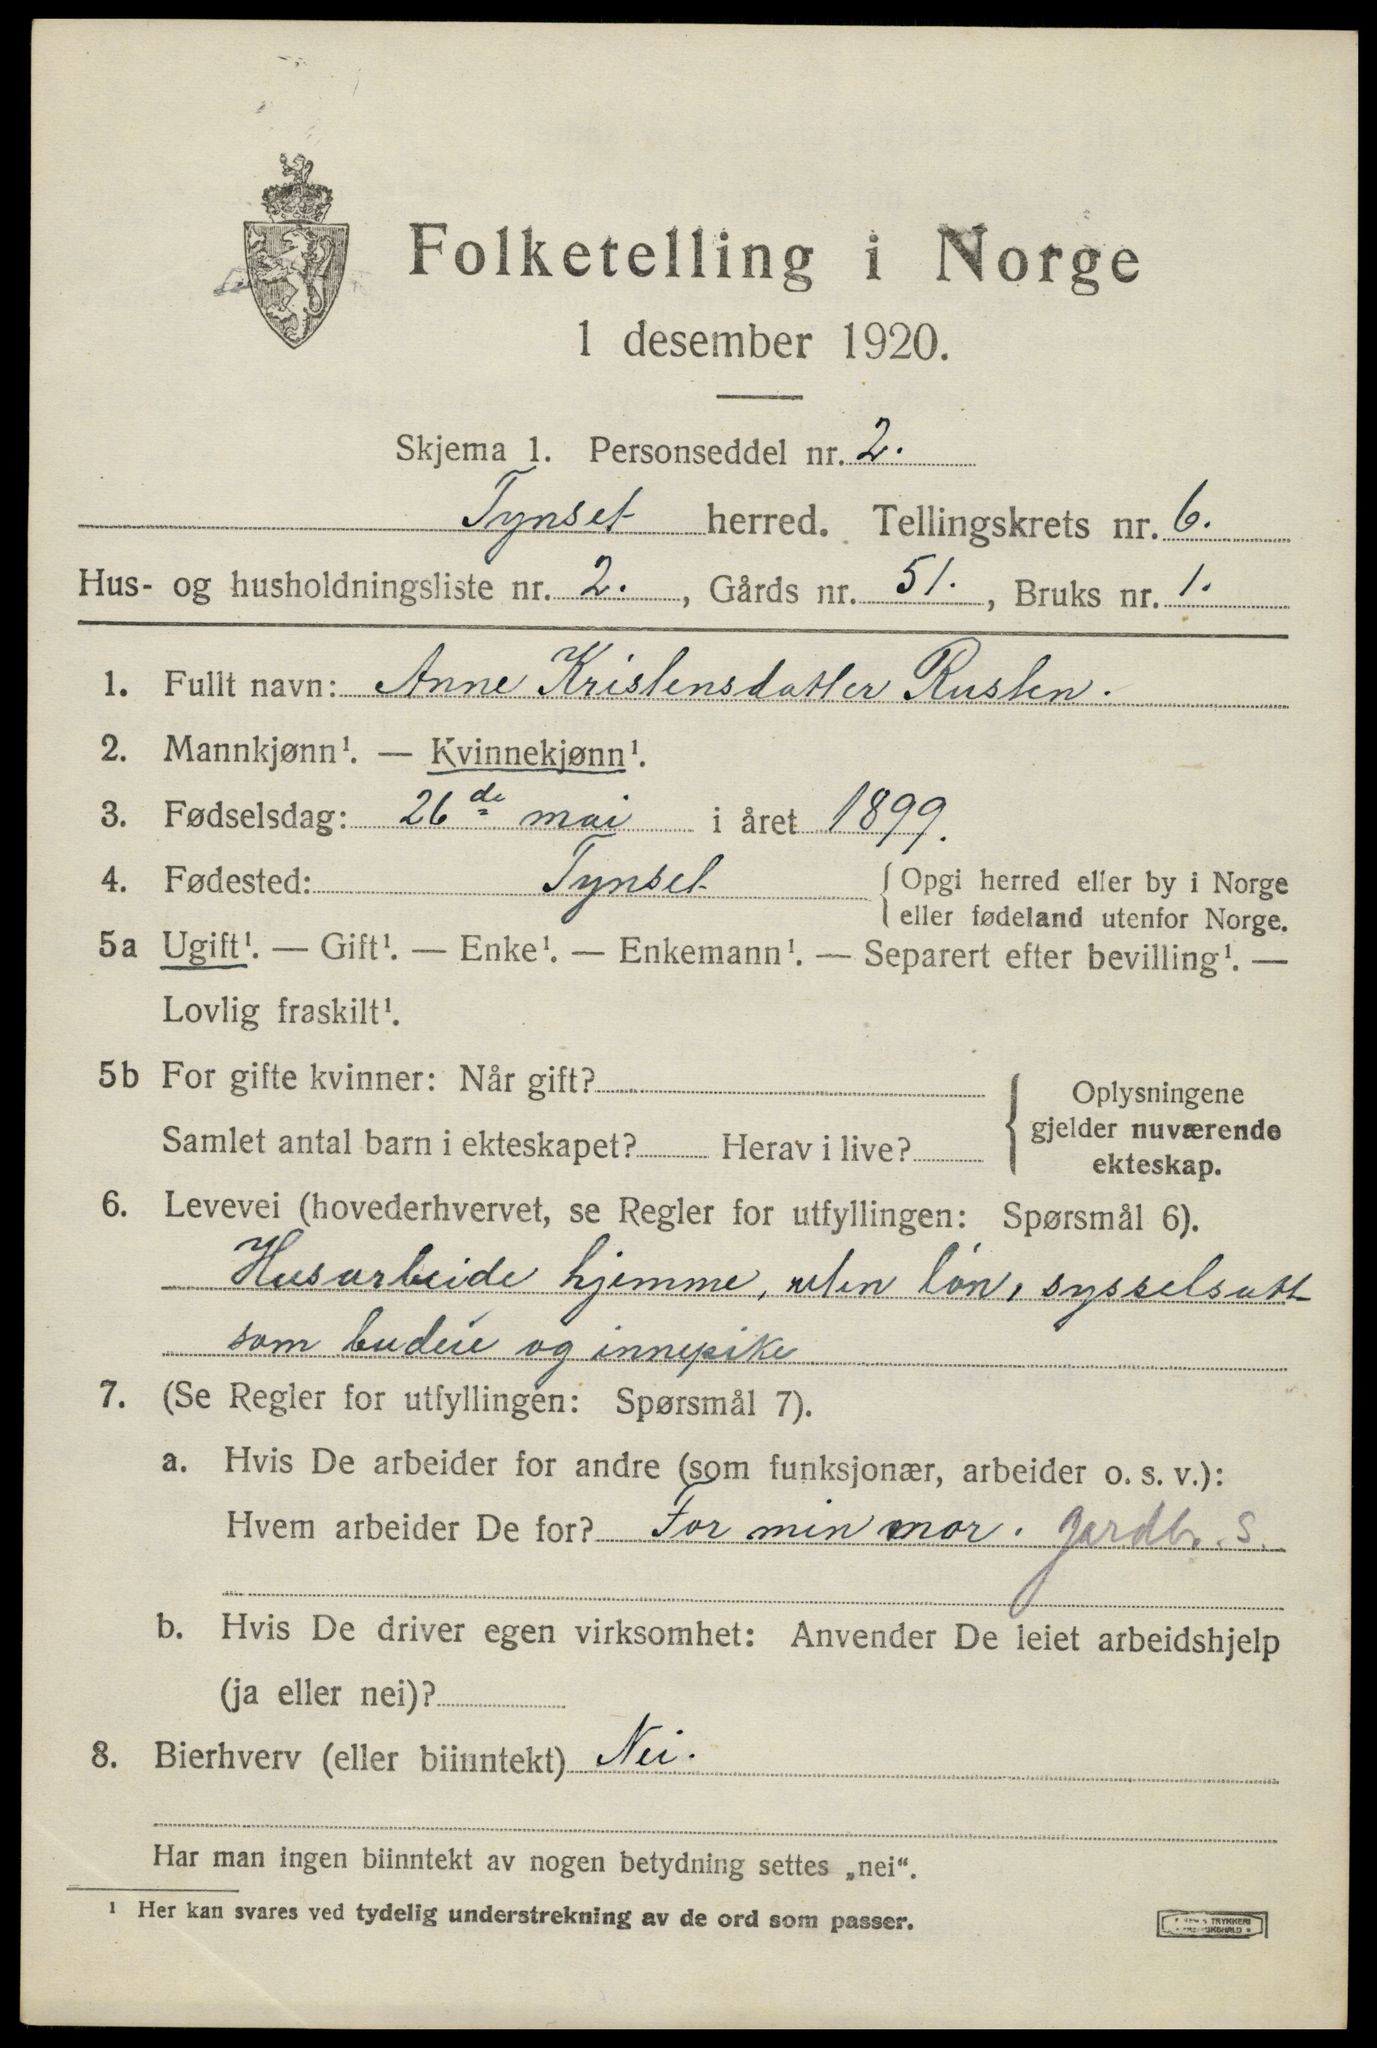 Folketelling i Norge
1 desember 1920.
Skjema 1. Personseddel nr. 2.
Tynset herred. Tellingskrets nr. 6.
Hus- og husholdningsliste nr. 2., Gårds nr. 51., Bruks nr. 1.
1. Fullt navn: Anne Kristensdatter Rusten.
2. Mannkjønn¹. — Kvinnekjønn¹.
3. Fødselsdag: 26de mai i året 1899.
4. Fødested: Tynset { Opgi herred eller by i Norge
eller fødeland utenfor Norge.
5a Ugift¹. — Gift¹. — Enke¹. — Enkemann¹. — Separert efter bevilling¹. —
Lovlig fraskilt¹.
5b For gifte kvinner: Når gift?
Samlet antal barn i ekteskapet? Herav i live?
{ Oplysningene
gjelder nuværende
ekteskap.
6. Levevei (hovederhvervet, se Regler for utfyllingen: Spørsmål 6).
Husarbeide hjemme, uten løn, sysselsatt
som budeie og innepike
7. (Se Regler for utfyllingen: Spørsmål 7).
a. Hvis De arbeider for andre (som funksjonær, arbeider o. s. v.):
Hvem arbeider De for? For min mor. gardbr. S.
b. Hvis De driver egen virksomhet: Anvender De leiet arbeidshjelp
(ja eller nei)?
8. Bierhverv (eller biinntekt) Nei.
Har man ingen biinntekt av nogen betydning settes „nei“.
¹ Her kan svares ved tydelig understrekning av de ord som passer.
TRYKKERI